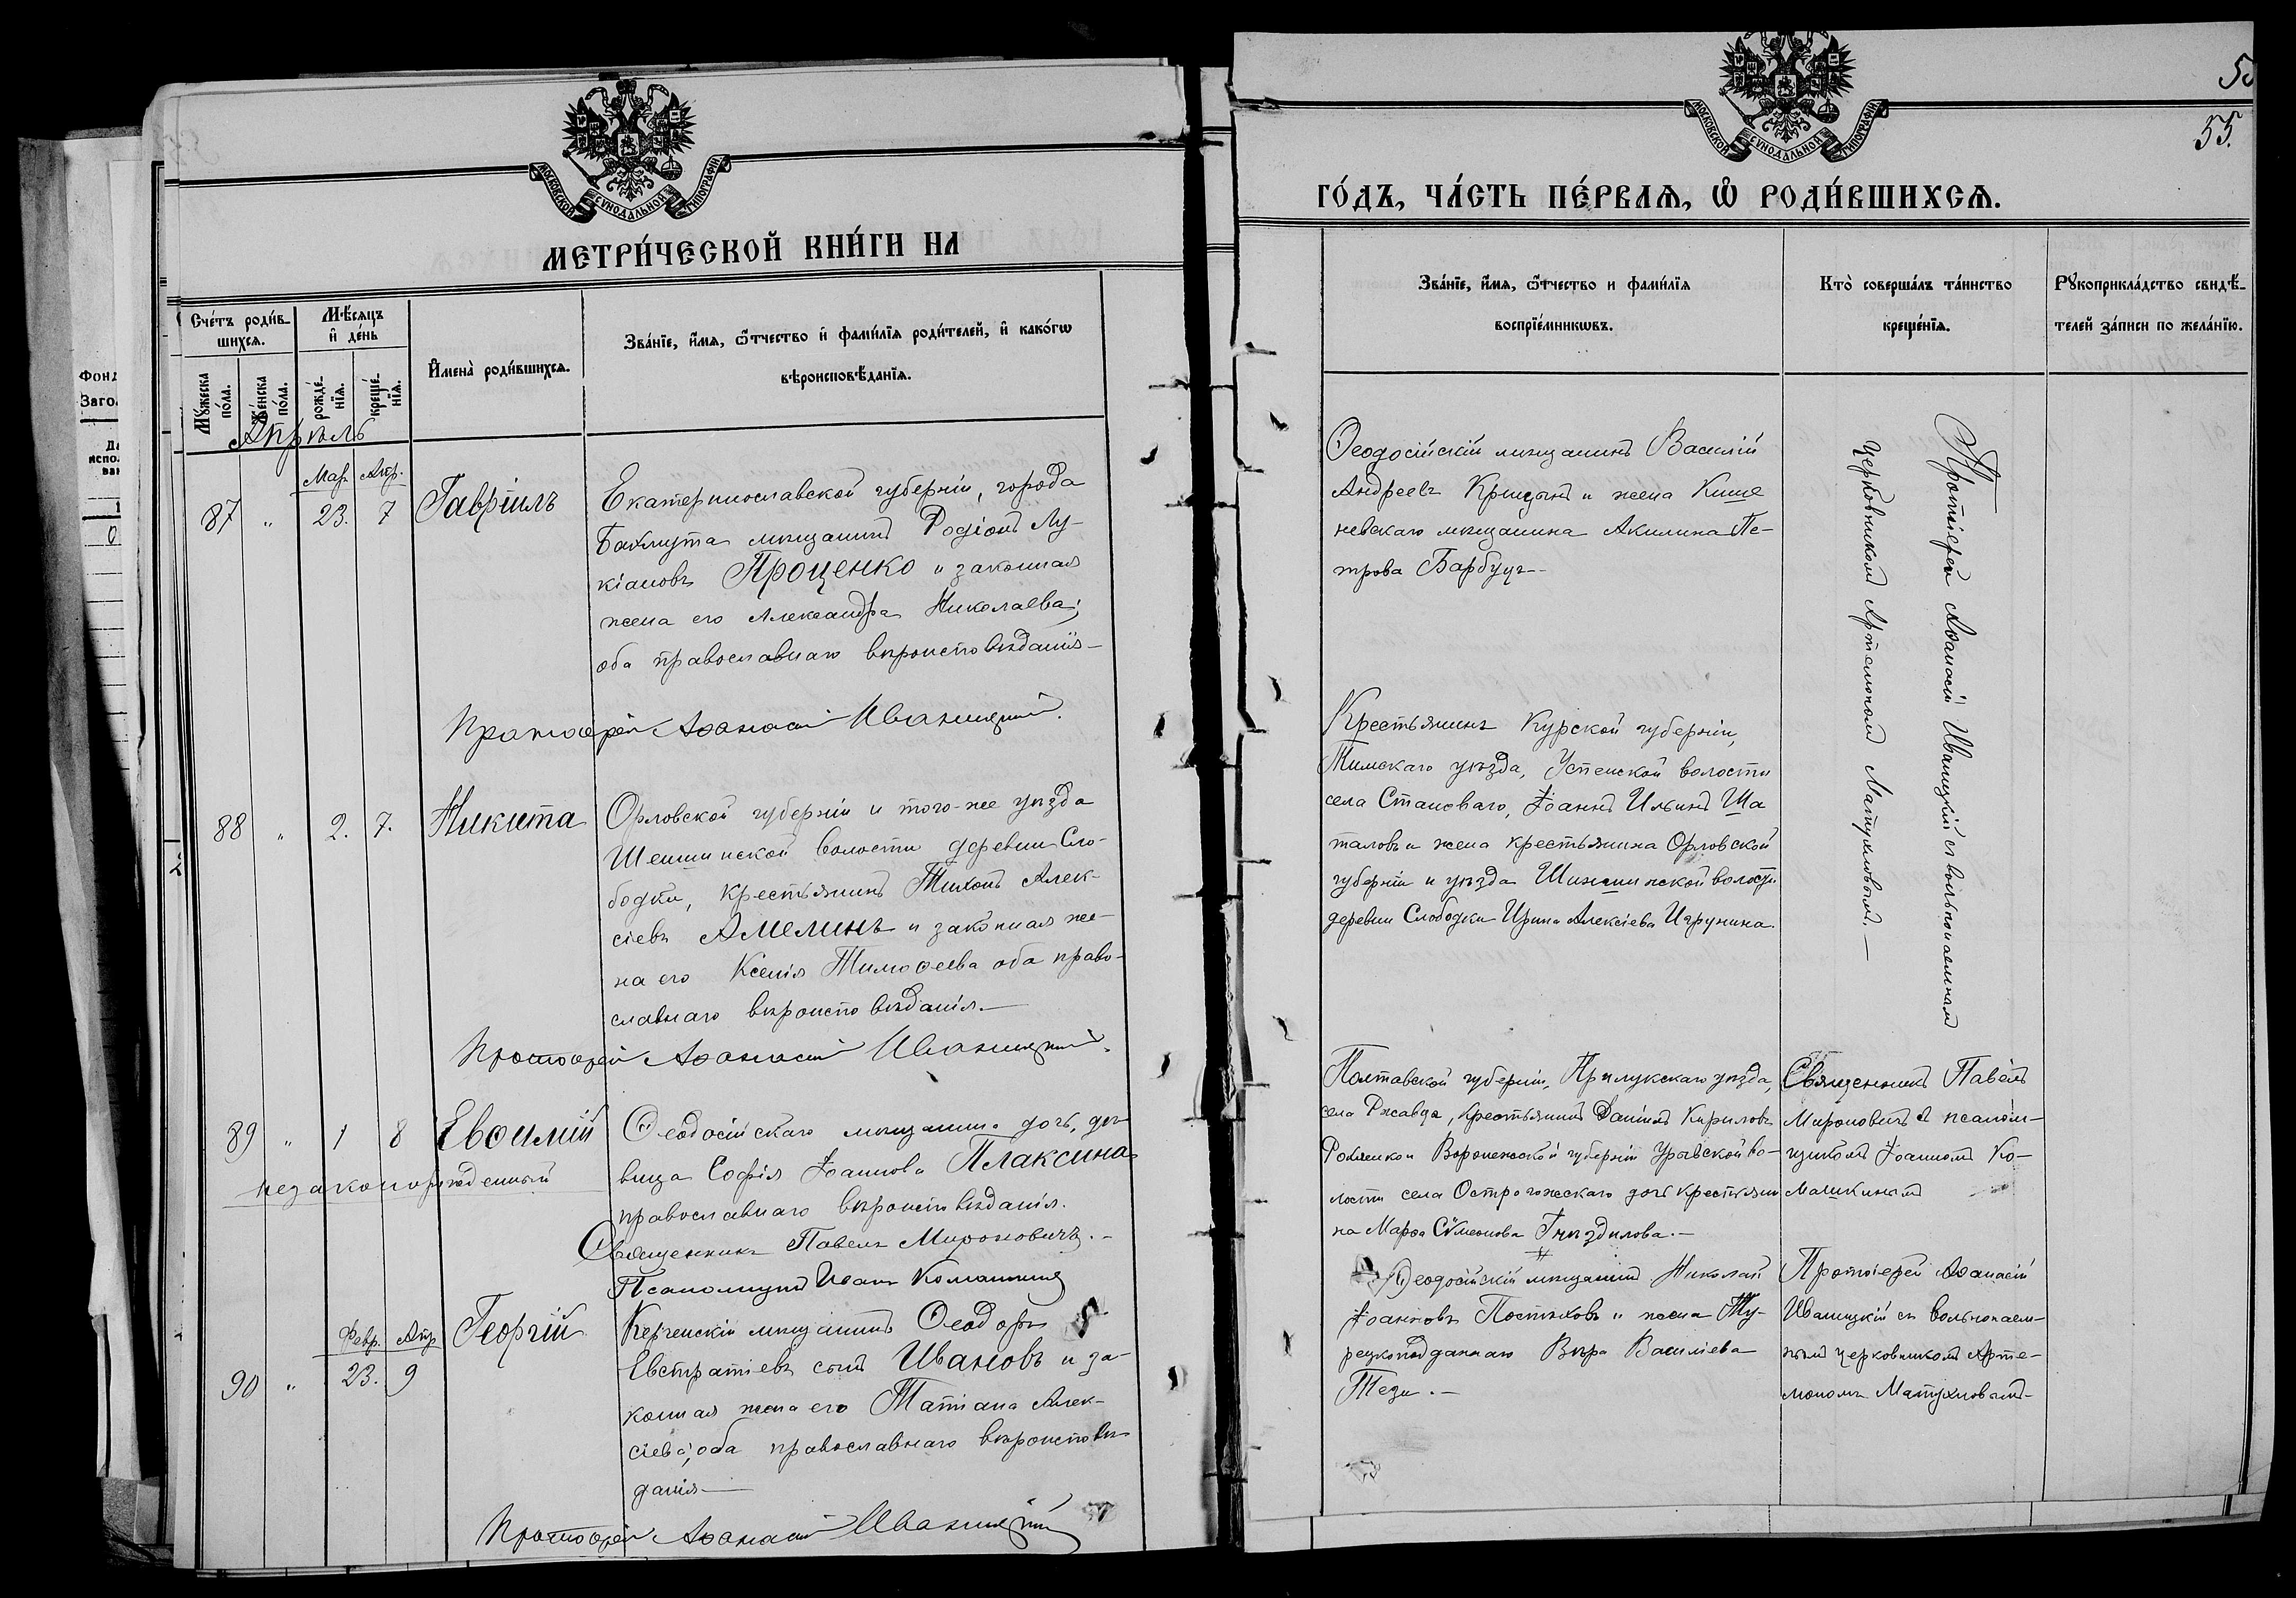 МОСКОВСКОЙ СѴНОДАЛЬНОЙ ТИПОГРАФІИ
МЕТРИ́ЧЕСКОЙ КНИ́ГИ НА
Сче́тъ роди́в-
шихсѧ.
Мѣ́сѧцъ
и҆ де́нь
И҆мена̀ роди́вшихсѧ.
Зва́нїе, и҆́мѧ, ѻ҆́тчество и҆ фами́лїѧ роди́телей, и҆ како́гѡ
вѣроисповѣ́данїѧ.
Мꙋ́жеска
по́ла.
Же́нска
по́ла.
рожде́-
нїѧ.
креще́-
нїѧ.
Апрѣль
Мар. Апр.
87 " 23. 7 Гавріилъ
Екатеринославской губерніи, города
Бахмута мѣщанинъ Родіонъ Лу-
кіановъ Проценко и законная
жена его Александра Николаева;
оба православнаго вѣроисповѣданія-
Протоіерей Аѳанасій Иваницкій.
88 " 2. 7. Никита
Орловской губерніи и того-же уѣзда
Шеншинской волости деревни Сло-
бодки, крестьянинъ Тихонъ Алек-
сіевъ Амелинъ и законная же-
на его Ксенія Тимоѳеева оба право-
славнаго вѣроисповѣданія.—
Протоіерей Аѳанасій Иваницкій.
89 " 1 8 Евѳимій
незаконорожденный
Ѳеодосійскаго мѣщанина дочь, дѣ-
вица Софія Іоаннова Плаксина
православнаго вѣроисповѣданія.
Священникъ Павелъ Мироновичъ.-
Псаломщикъ Иоанъ Комашкинъ
Февр. Апр
90 " 23. 9 Георгій
Керченскій мѣщанинъ Ѳеодоръ
Евстратіевъ сынъ Ивановъ и за-
конная жена его Татіана Алек-
сіева; оба православнаго вѣроисповѣ-
данія—
Протоіерей Аѳанасій Иваницкій
55.
МОСКОВСКОЙ СѴНОДАЛЬНОЙ ТИПОГРАФІИ
ГО́ДЪ, ЧА́СТЬ ПЕ́РВАѦ, Ѡ҆ РОДИ́ВШИХСѦ.
Зва́нїе, и҆́мѧ, ѻ҆́тчество и фами́лїѧ
воспрїе́мникѡвъ.
Кто̀ соверша́лъ та́инство
креще́нїѧ.
Рꙋкоприкла́дство свидѣ́-
телей за́писи по жела́нїю.
Ѳеодосійскій мѣщанинъ Василій
Андреевъ Крицынъ и жена Кише
невскаго мѣщанина Акилина Пе-
трова Барбуцъ-
Протоіерей Аѳанасій Иваницкій съ вольнонаемнымъ
церковникомъ Артемономъ Матухновымъ.—
Крестьянинъ Курской губерніи,
Тимскаго уѣзда, Успенской волости
села Становаго, Іоаннъ Ильинъ Ша
таловъ и жена крестьянина Орловской
губерніи и уѣзда Шиншинской волости
деревни Слободки Ирина Алексіева Игрунина.
Полтавской губерніи, Прилукскаго уѣзда,
села Ржавца, крестьянинъ Даніилъ Кириловъ
Романком Воронежской губерніи Урывской во-
лости села Острогожскаго дочь крестьяни
на Марѳа Сѵмеонова Гнѣздилова.—
Священникъ Павелъ
Мироновичъ съ псалом-
щикомъ Іоанномъ Ко-
машкинымъ
Ѳеодосійскій мѣщанинъ Николай
Іоанновъ Постиховъ и жена Ту-
рецкоподданнаго Вѣра Василіева
Тези.—
Протоіерей Аѳанасій
Иваницкій съ вольнонаем-
нымъ церковникомъ Арте-
мономъ Матухновымъ-